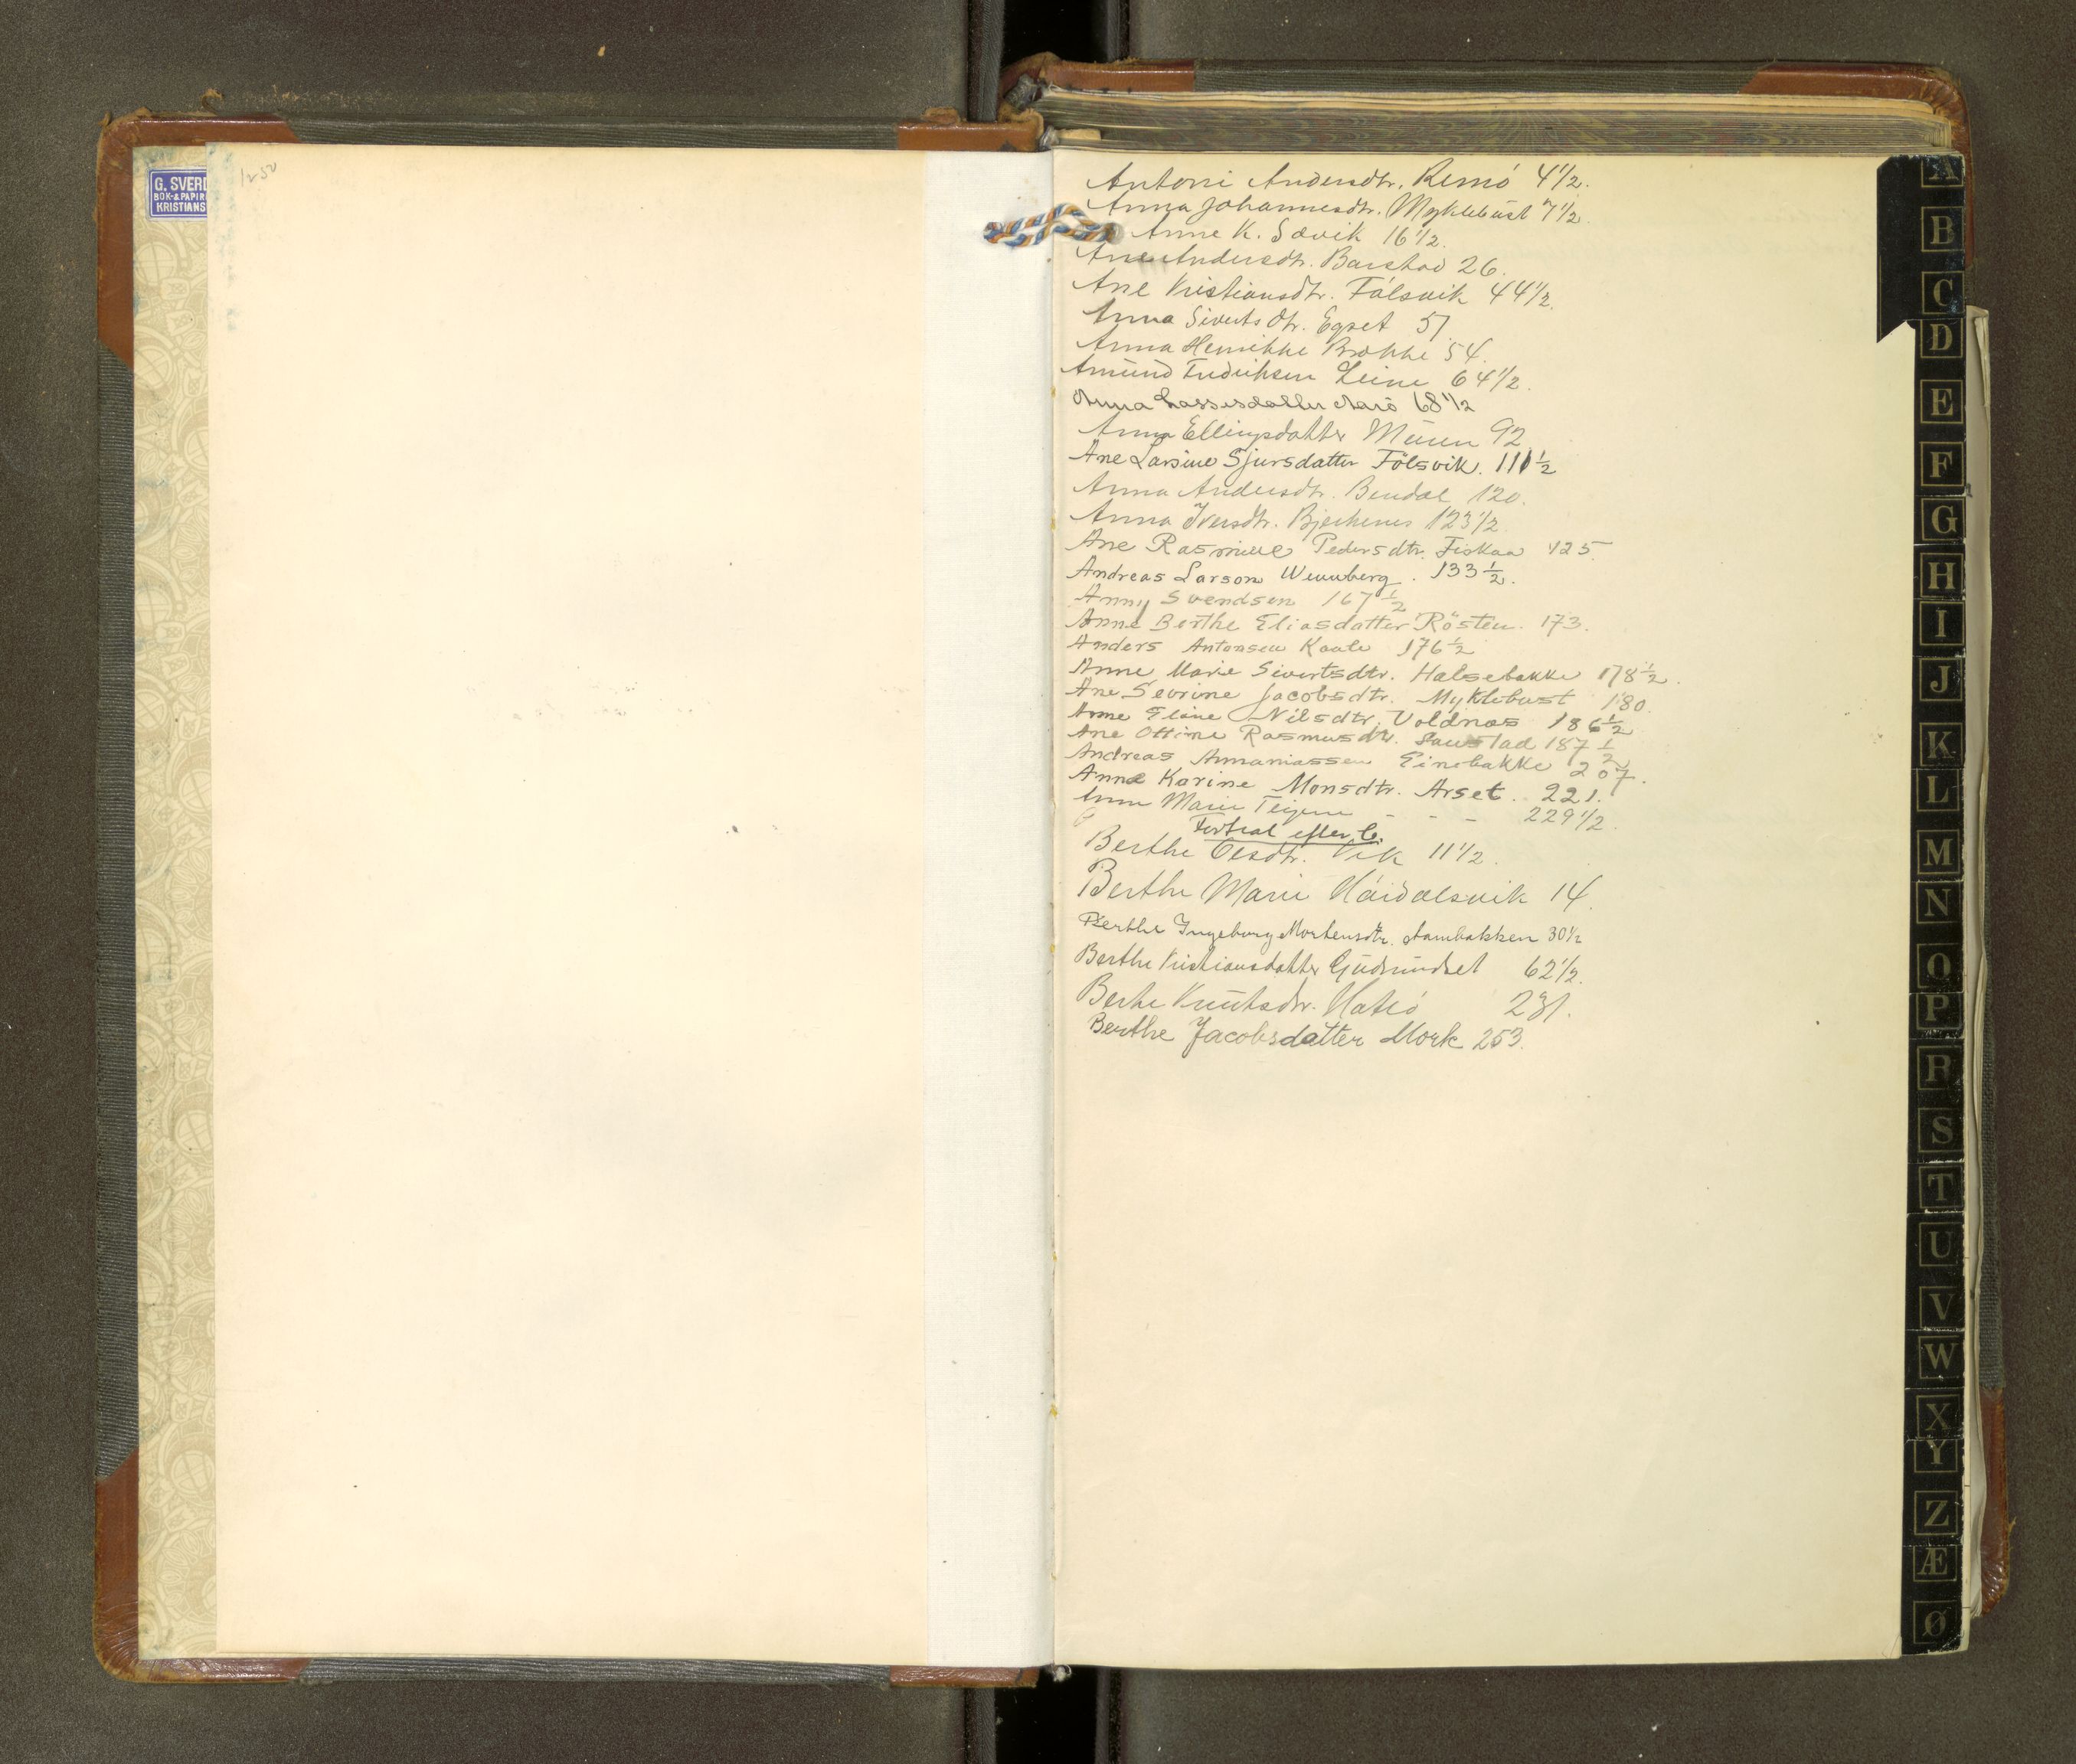 1250
G. SVERD
BOK-&PAPIR
KRISTIANS
Antoni Andersdtr. Remö 4 1/2.
Anna Johannesdtr. Myklebust 7 1/2
Anne K. Sævik 16 1/2.
Ane Andersdtr. Barstad 26.
Ane Kristiansdtr. Fölsvik 44 1/2.
Anna Siverts dtr. Egset 51
Anna Henrikke Brække 54.
Amund Fredriksen Leine 64 1/2.
Anna Lassesdatter 68 1/2
Anna Ellingsdatter Muren 92
Ane Larsine Sjursdatter Fölsvik. 111 1/2
Anna Andersdtr. Bendal 120.
Anna Iversdtr. Bjerkenes 123 1/2
Ane Rasmine Pedersdtr. Fiskaa 125.
Andreas Larson Wennberg. 133 1/2.
Anny Svendsen 167 1/2
Anne Berthe Eliasdatter Rösten. 173.
Anders Antonsen 176 1/2
Anne Marie Sivertsdtr. Halsebakke 178 1/2.
Ane Sevrine Jacobsdtr. Myklebust 180.
Anne Eline Nilsdtr. Voldnæs 186 1/2
Ane Ottine Rasmusdtr. Saustad 187 1/2
Andreas Annaniassen Einebakke 207.
Anna Karine Monsdtr. Årset. 221.
Anna Marie Teigene - - - 229 1/2.
Fortsat efter C.
Berthe Olsdtr. Vik 11 1/2.
Berthe Marie Haidalsvik 14.
Berthe Ingeborg Mortensdtr. Aambakken 30 1/2
Berthe Kristiansdatter Gudmundset 62 1/2.
Berte Knutsdtr. Hatlö 231.
Berthe Jacobsdatter Mork 253.
A
B
C
D
E
F
G
H
I
J
K
L
M
N
O
P
R
S
T
U
V
W
X
Y
Z
Æ
Ø